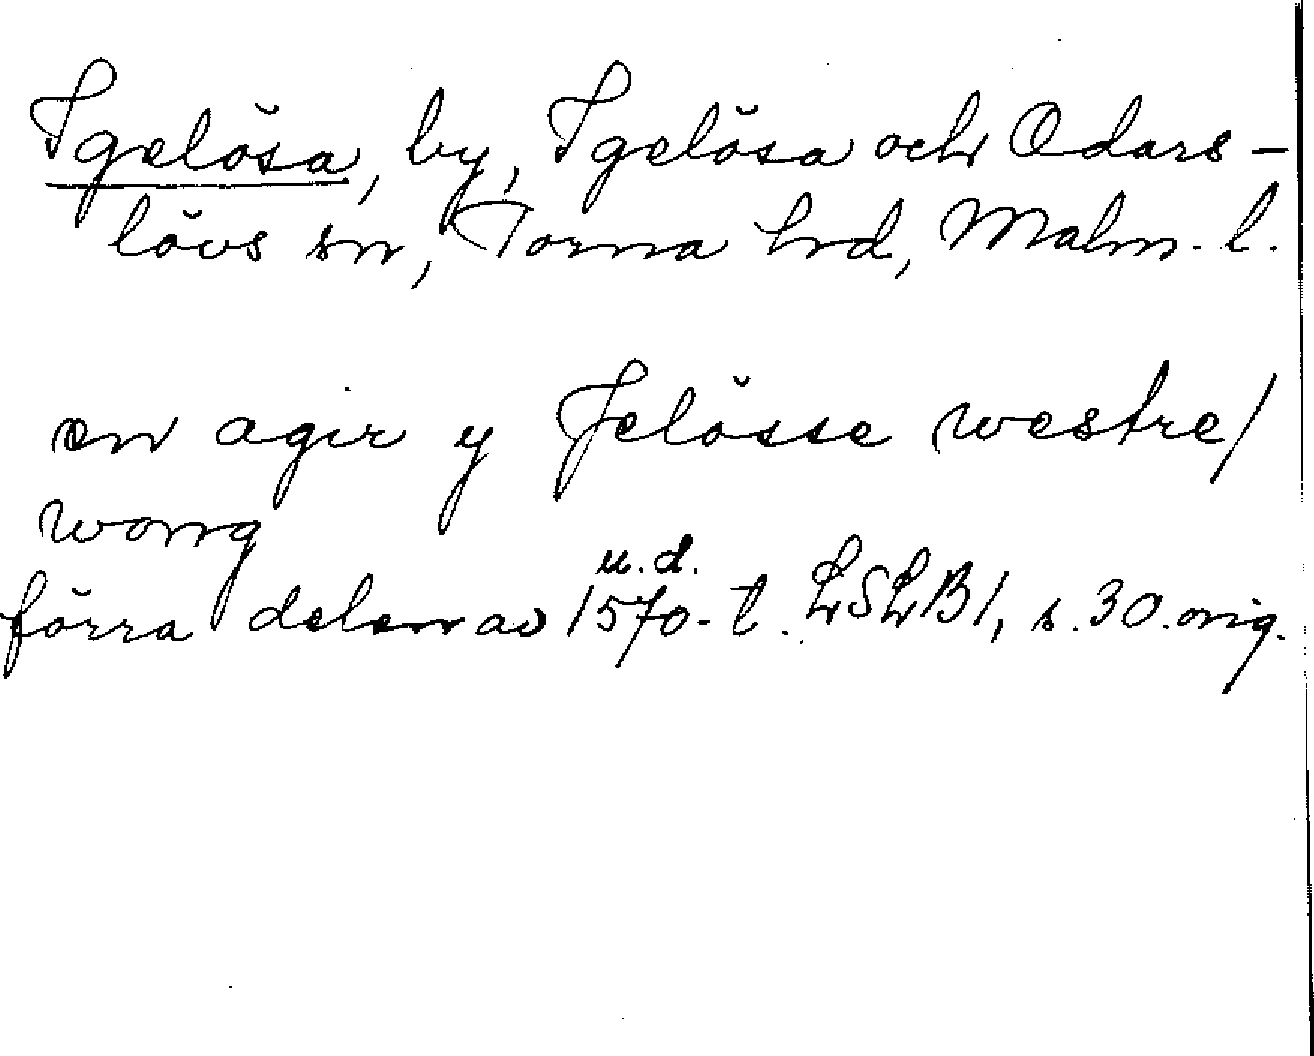 Igelösa, by, Igelösa och Odars-
lövs sn, Torna hrd, Malm. l.
en agir y Jelösse westre/
wong
u.d.
förra delen av 1570-t. LSLB1, s. 30. orig.